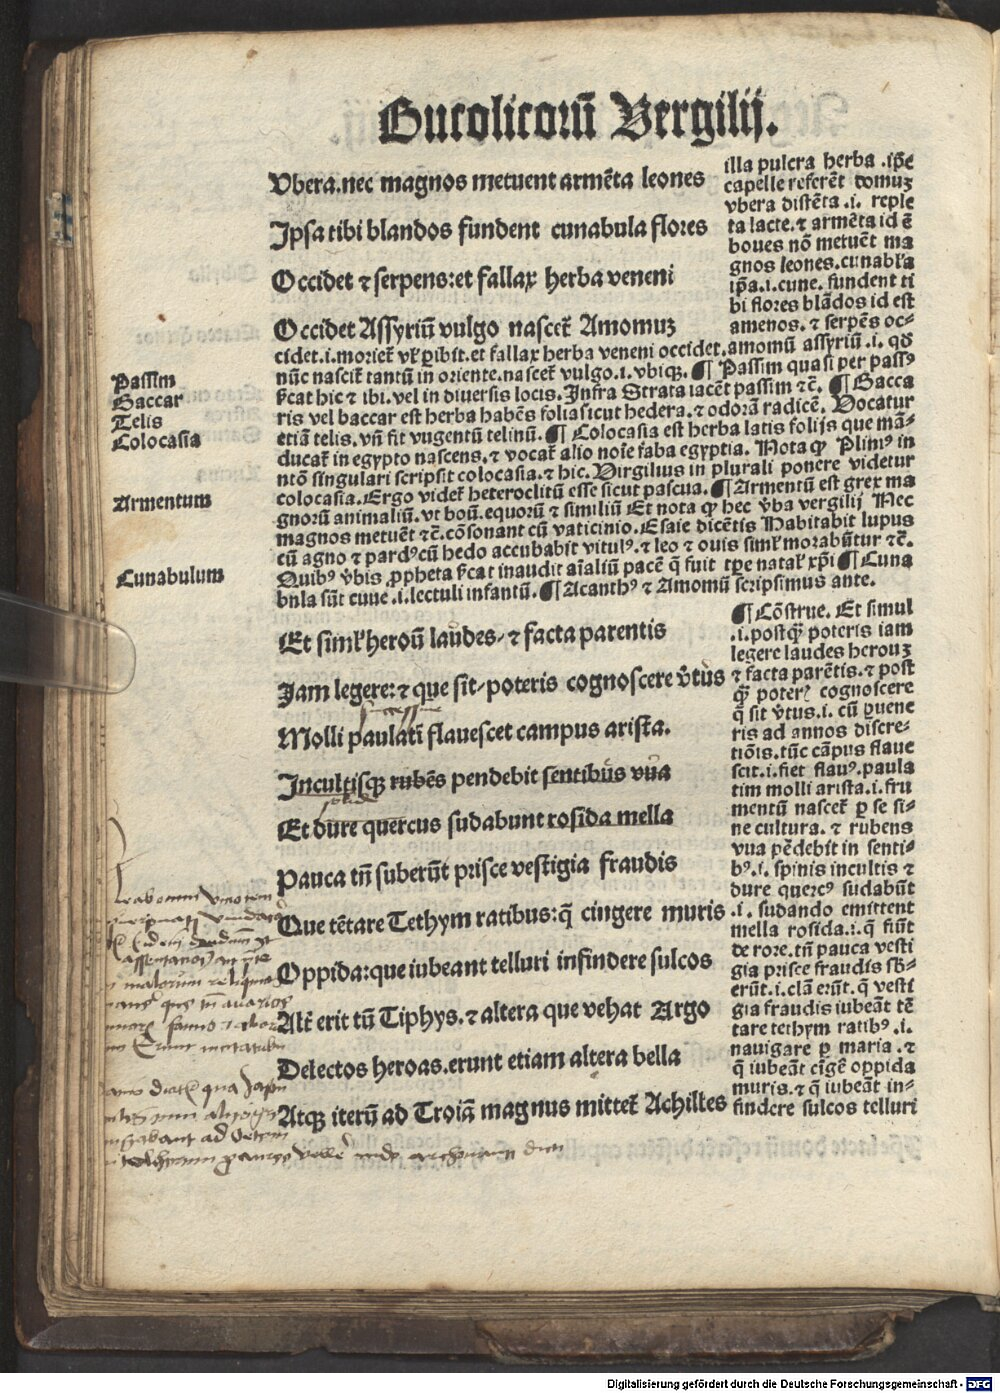 Bucolicorū Vergilij.
Vbera.nec magnos metuent armēta leones
Ipsa tibi blandos fundent cunabula flores
Occidet ⁊ serpens:et fallax herba veneni
Occidet Assyriū vulgo nascet̄ Amomuꝫ
illa pulcra herba .ip̄e
capelle referēt domuꝫ
vbera distēta .i. reple
ta lacte.⁊ armēta id ē
boues nō metuēt ma
gnos leones.cunabl̄a
ip̄a.i.cune. fundent ti
bi flores blādos id est
amenos. ⁊ serpēs oc-
cidet.i.moriet̄ vl̄ ꝑibit.et fallax herba veneni occidet.amomū assyriū .i. qd̄
nūc nascit̄ tantū in oriente.nascet̄ vulgo.i.vbiqꝫ. ¶ Passim quasi per passꝰ
s̄cat hic ⁊ ibi.vel in diuersis locis. Infra Strata iacēt passim ⁊c̄. ¶ Bacca
ris vel baccar est herba habēs folia sicut hedera.⁊ odorā radicē. Vocatur
etiā telis.vn̄ fit vngentū telinū.¶ Colocasia est herba latis folijs que mā-
ducat̄ in egypto nascens.⁊ vocat̄ alio noīe faba egyptia. Nota ꝙ Plinꝰ in
ntō singulari scripsit colocasia.⁊ hic. Virgilius in plurali ponere videtur
colocasia.Ergo videt̄ heteroclitū esse sicut pascua.¶ Armentū est grex ma
gnorū animaliū.vt boū.equorū ⁊ similiū Et nota ꝙ hec v̄ba vergilij Nec
magnos metuēt ⁊c̄.cōsonant cū vaticinio.Esaie dicētis Habitabit lupus
cū agno ⁊ pardꝰ cū hedo accubabit vitulꝰ.⁊ leo ⁊ ouis siml̄ morabūtur ⁊c̄.
Quibꝰ v̄bis ꝓpheta s̄cat inaudit aīaliū pacē q̄ fuit tp̄e natal̄ xp̄i ¶ Cuna
bula sūt cune .i.lectuli infantū.¶ Acanthꝰ ⁊ Amomū scripsimus ante.
Passim
Baccar
Telis
Colocasia
Armentum
Cunabulum
Et siml̄ heroū laudes- ⁊ facta parentis
Iam legere:⁊ que sit-poteris cognoscere v̄tus
Molli paulatī flauescet campus arista.
Incultisqꝫ rubēs pendebit sentibus vua
Et dure quercus sudabunt rosida mella
Pauca tn̄ suberūt prisce vestigia fraudis
Que tētare Tethym ratibus:q̄ cingere muris
Oppida:que iubeant telluri infindere sulcos
Alt̄ erit tū Tiphys.⁊ altera que vehat Argo
Delectos heroas.erunt etiam altera bella
Atqꝫ iterū ad Troiā magnus mittet̄ Achilles
¶ Cōstrue. Et simul
.i.postq̄ꝫ poteris iam
legere laudes herouꝫ
⁊ facta parētis.⁊ post
q̄ꝫ poter̄ cognoscere
q̄ sit v̄tus.i. cū ꝑuene
ris ad annos discre-
tiōis.tūc cāpus flaue
scit.i.fiet flauꝰ.paula
tim molli arista.i.fru
mentū nascet̄ ꝑ se si-
ne cultura. ⁊ rubens
vua pēdebit in senti-
bꝰ.i. spinis incultis ⁊
dure quercꝰ sudabūt
.i. sudando emittent
mella rosida.i.q̄ fiūt
de rore.tn̄ pauca vesti
gia prisce fraudis sb̄-
erūt.i.clā erūt.q̄ vesti
gia fraudis iubeāt tē
tare tethym ratibꝰ .i.
nauigare ꝑ maria.⁊
q̄ iubeāt cīgē oppida
muris.⁊ q̄ iubeāt in-
findere sulcos telluri
Digitalisierung gefördert durch die Deutsche Forschungsgemeinschaft - DFG